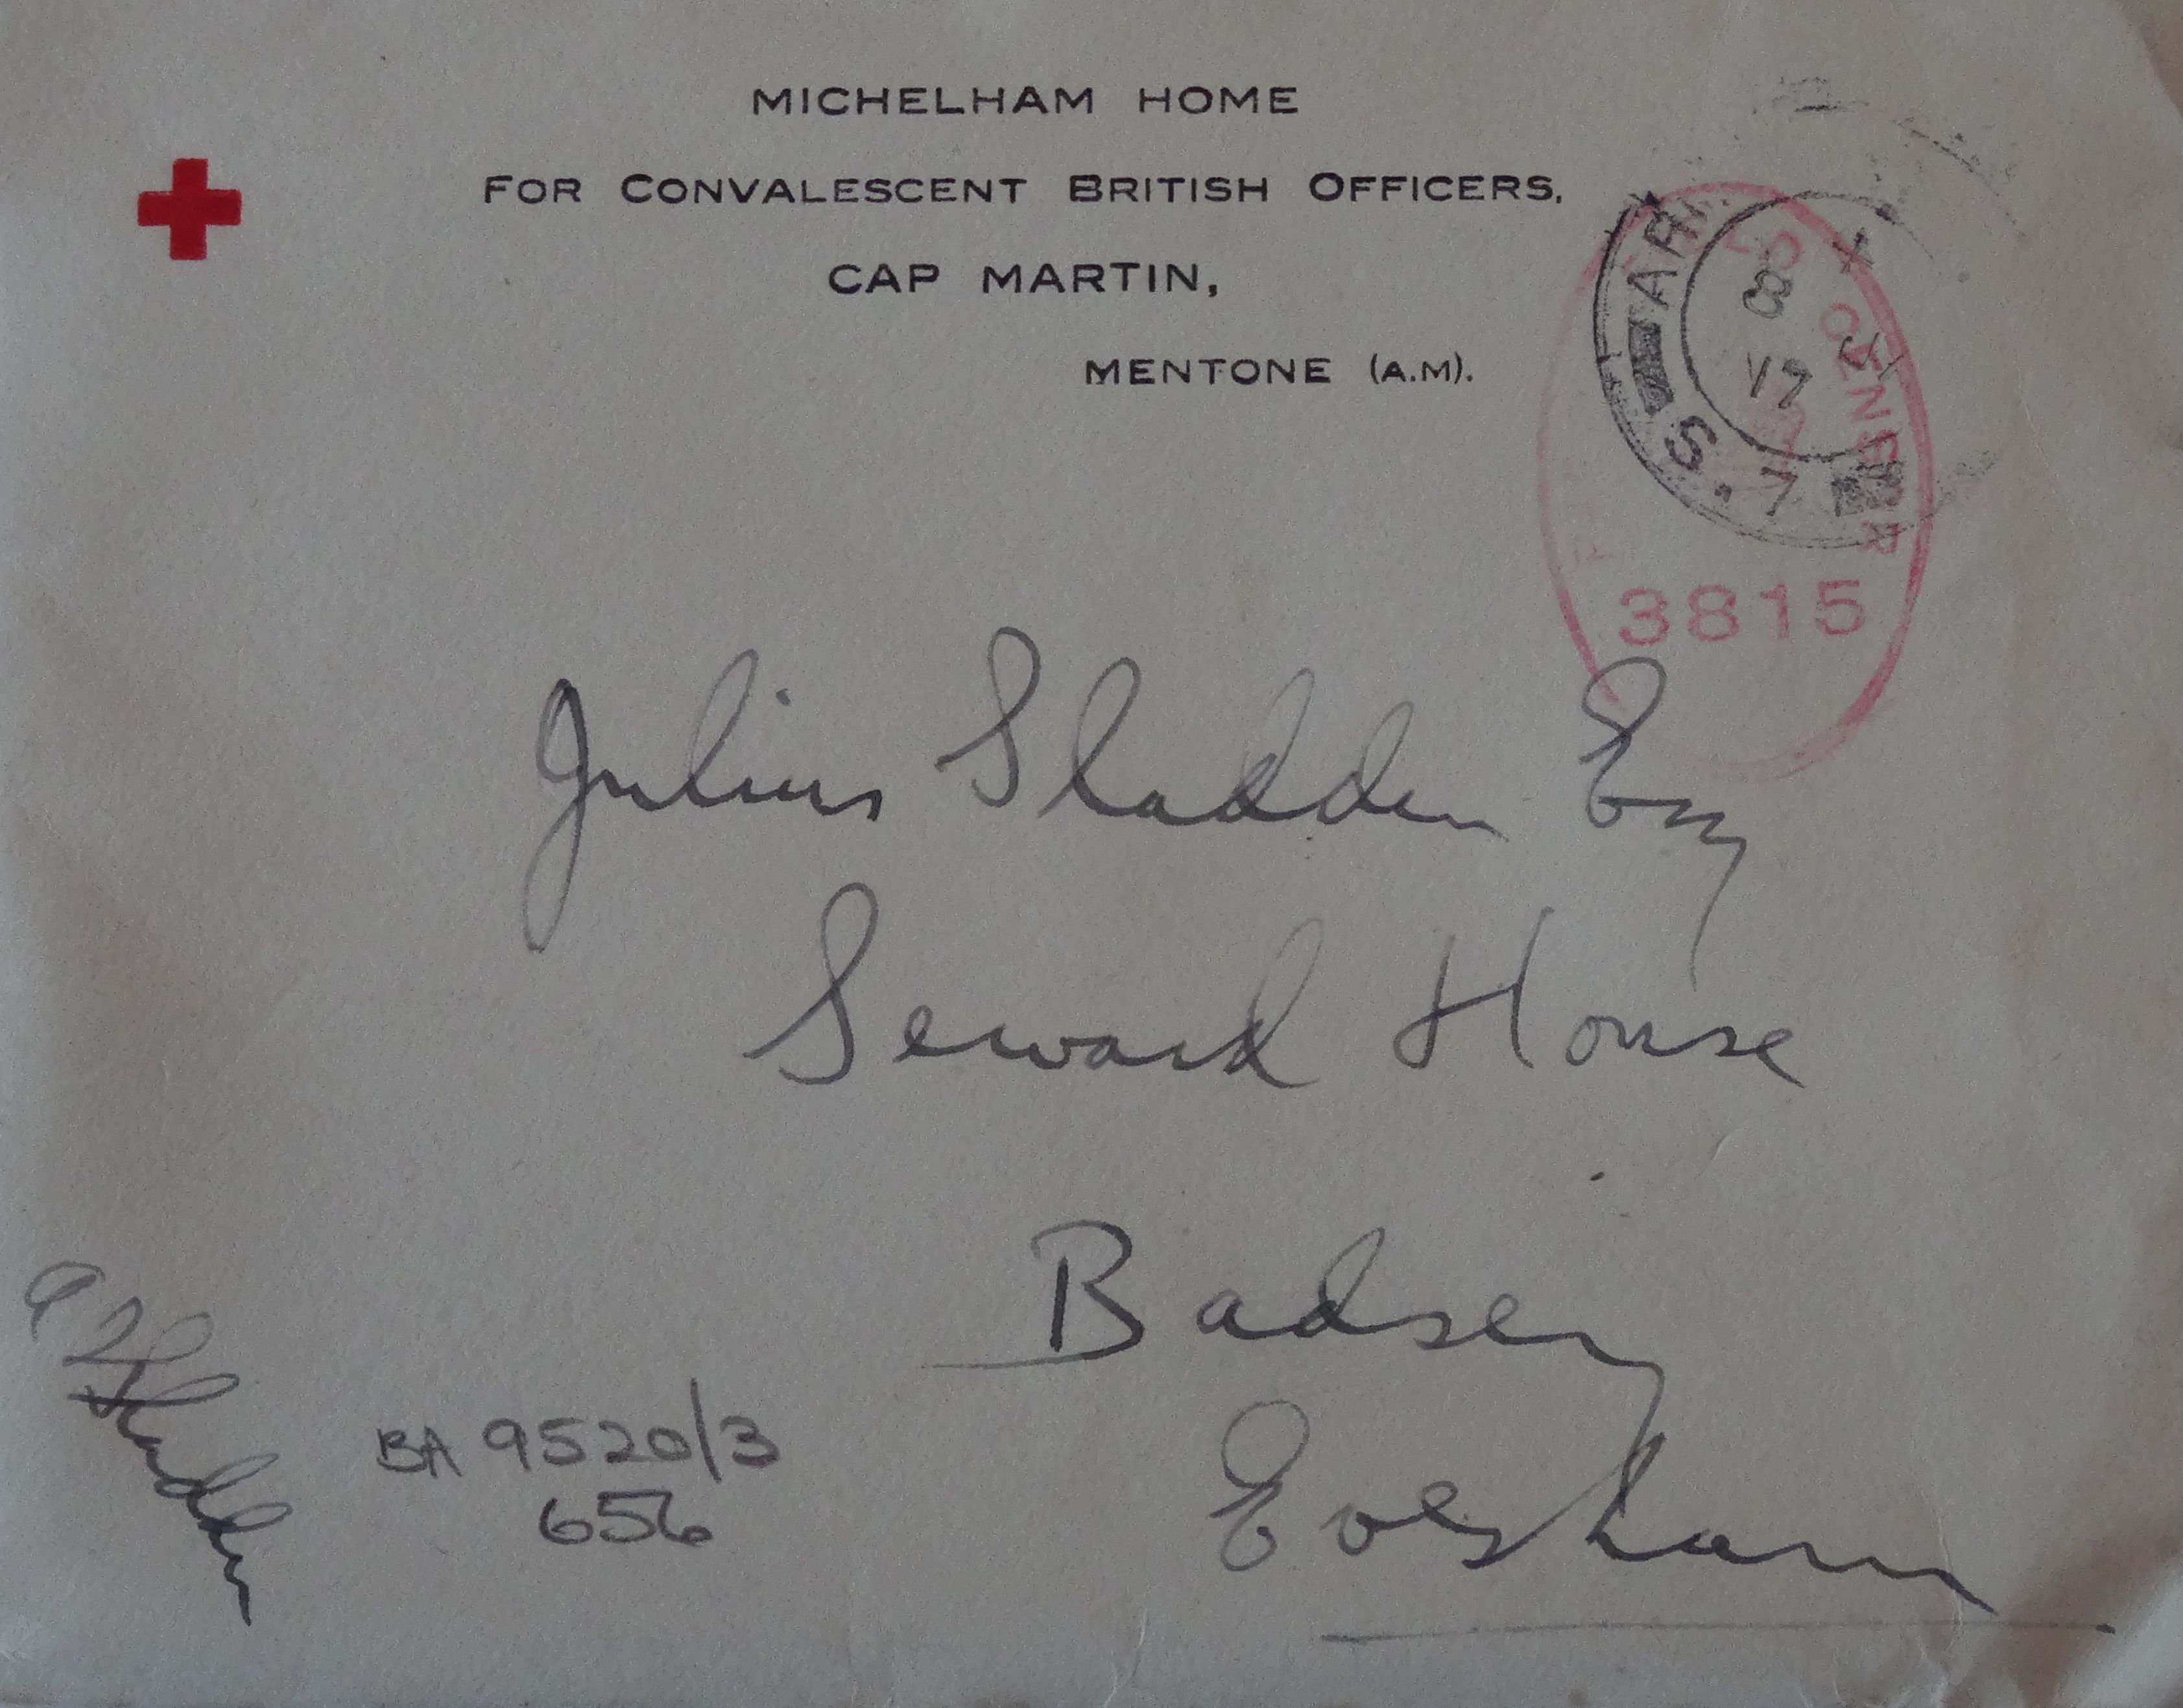 MICHELHAM HOME
FOR CONVALESCENT BRITISH OFFICERS,
CAP MARTIN,
MENTONE (A.M).
AR
S.7
8
17
CENSOR
3815
Julius Sladden Esq
Seward House
Badsey
Evesham
A Sladden
BA 9520/3
656